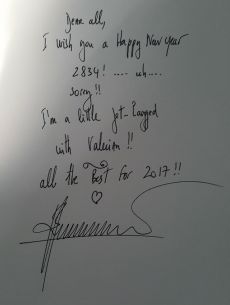 Dear all,
I wish you a Happy New year
2834! .... uh....
sorry!!
I'm a little jet-lagged
with Valerian!!
all the Best for 2017!!
♡